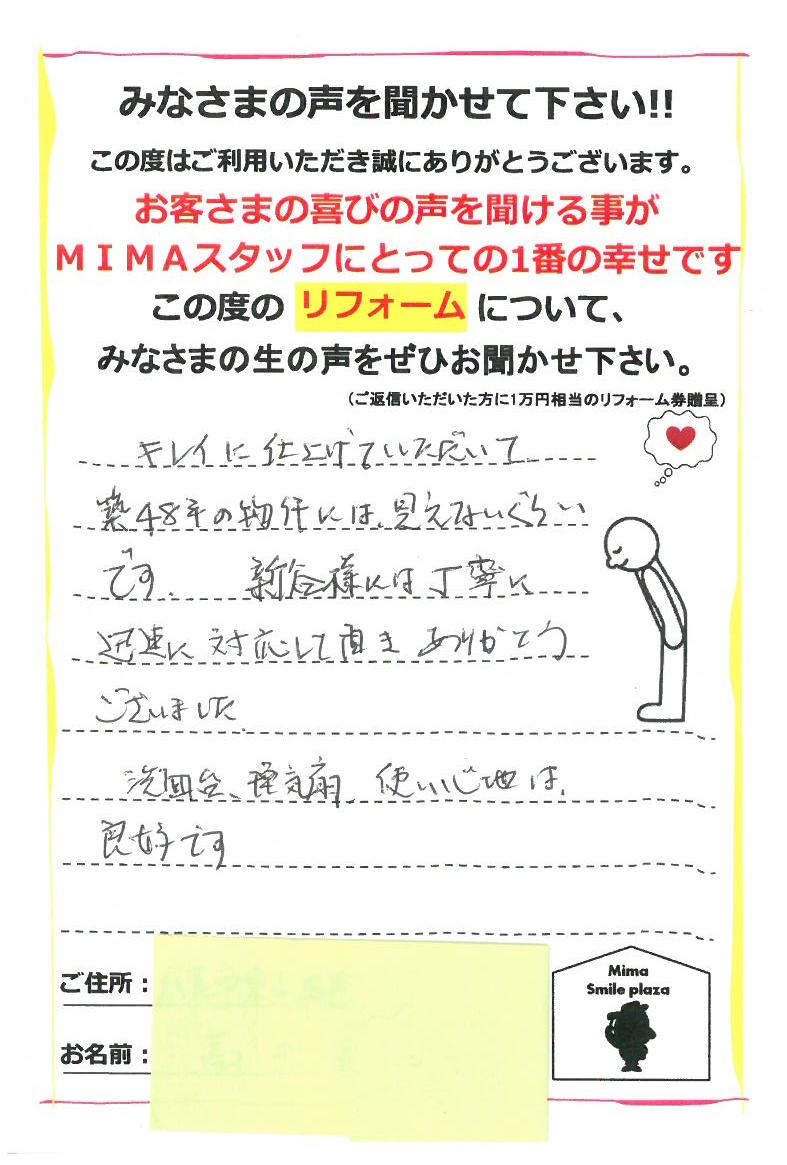 みなさまの声を聞かせて下さい!!
この度はご利用いただき誠にありがとうございます。
お客さまの喜びの声を聞ける事が
MIMAスタッフにとっての1番の幸せです
この度の リフォーム について、
みなさまの生の声をぜひお聞かせ下さい。
(ご返信いただいた方に1万円相当のリフォーム券贈呈)
キレイに仕上げていただいて
築48年の物件には、見えないぐらい
です。 新谷様には丁寧に
迅速に対応して頂き ありがとう
ございました
洗面台、換気扇、使い心地は、
良好です
ご住所:
お名前:
Mima
Smile plaza